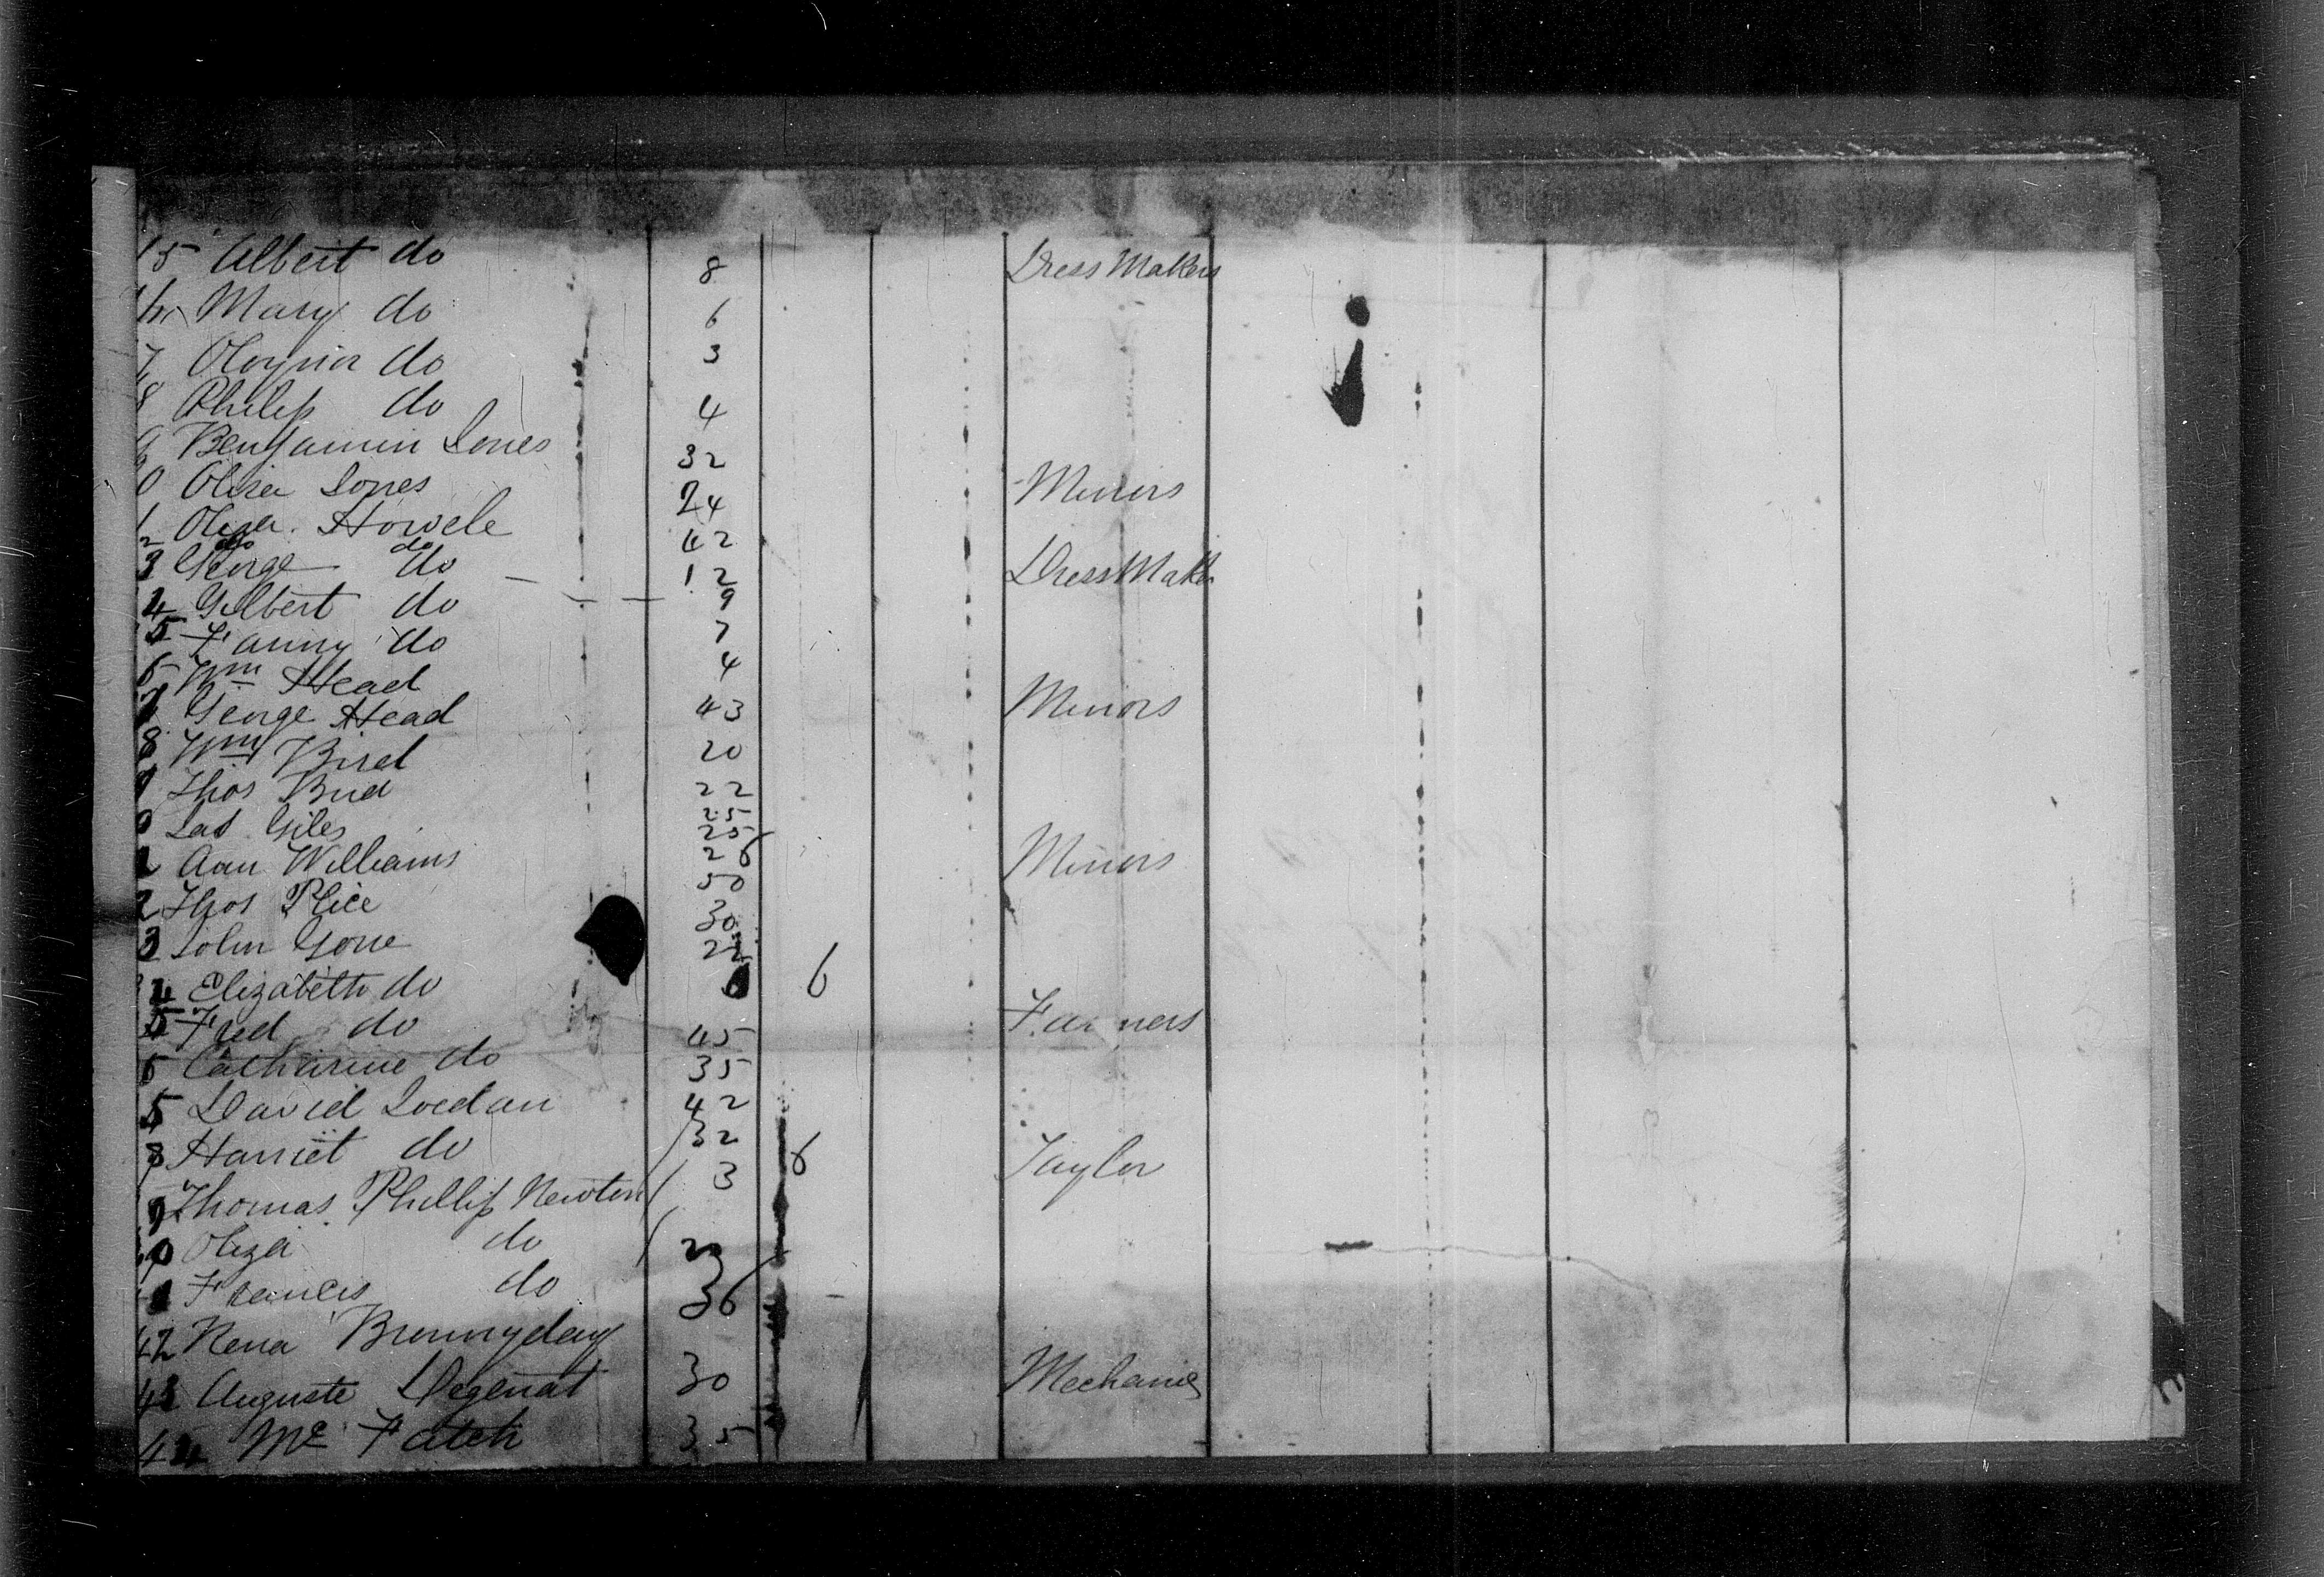 15 Albert do 8 Dress Makers
Mary do 6
7 do 3
8 Philip do 4
9 Benjamin Jones 32
0 Jones 24 Miners
1 Howele 42
2 do do
3 George do 12 Dress Maker
4 Gilbert do 9
5 Fanny do 7
6 Wm Head 4
7 George Head 43 Miners
8 Wm Bird 20
9 Thos Bird 22
0 Jas Giles 25
25
Ann Williams 26 Miners
50
2 Thos Price 30
3 John Gorre 22
4 Elizabeth do 6
5 Fred do 45 Farmers
6 Catherine do 35
5 David Jordan 42
8 Harriet do 32
9 Thomas Phillip Newton 3 6 Taylor
0 Oliza do
Frances do 36
42 Rena
43 Auguste Degenat 30 Mechanic
44 Mc Fatch 35